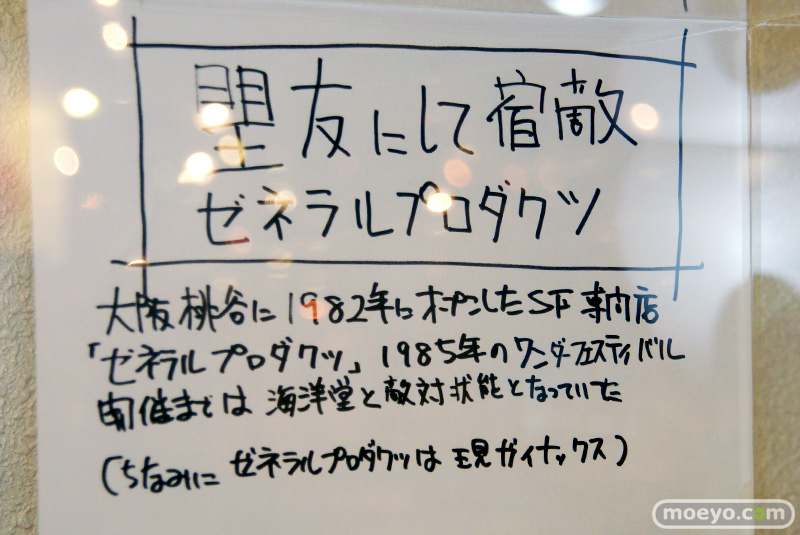 盟友にして宿敵
ゼネラルプロダクツ
大阪桃谷に1982年にオープンしたSF専門店
「ゼネラルプロダクツ」1985年のワンダーフェスティバル
開催までは海洋堂と敵対状能となっていた
(ちなみにゼネラルプロダクツは現ガイナックス)
moeyo.com